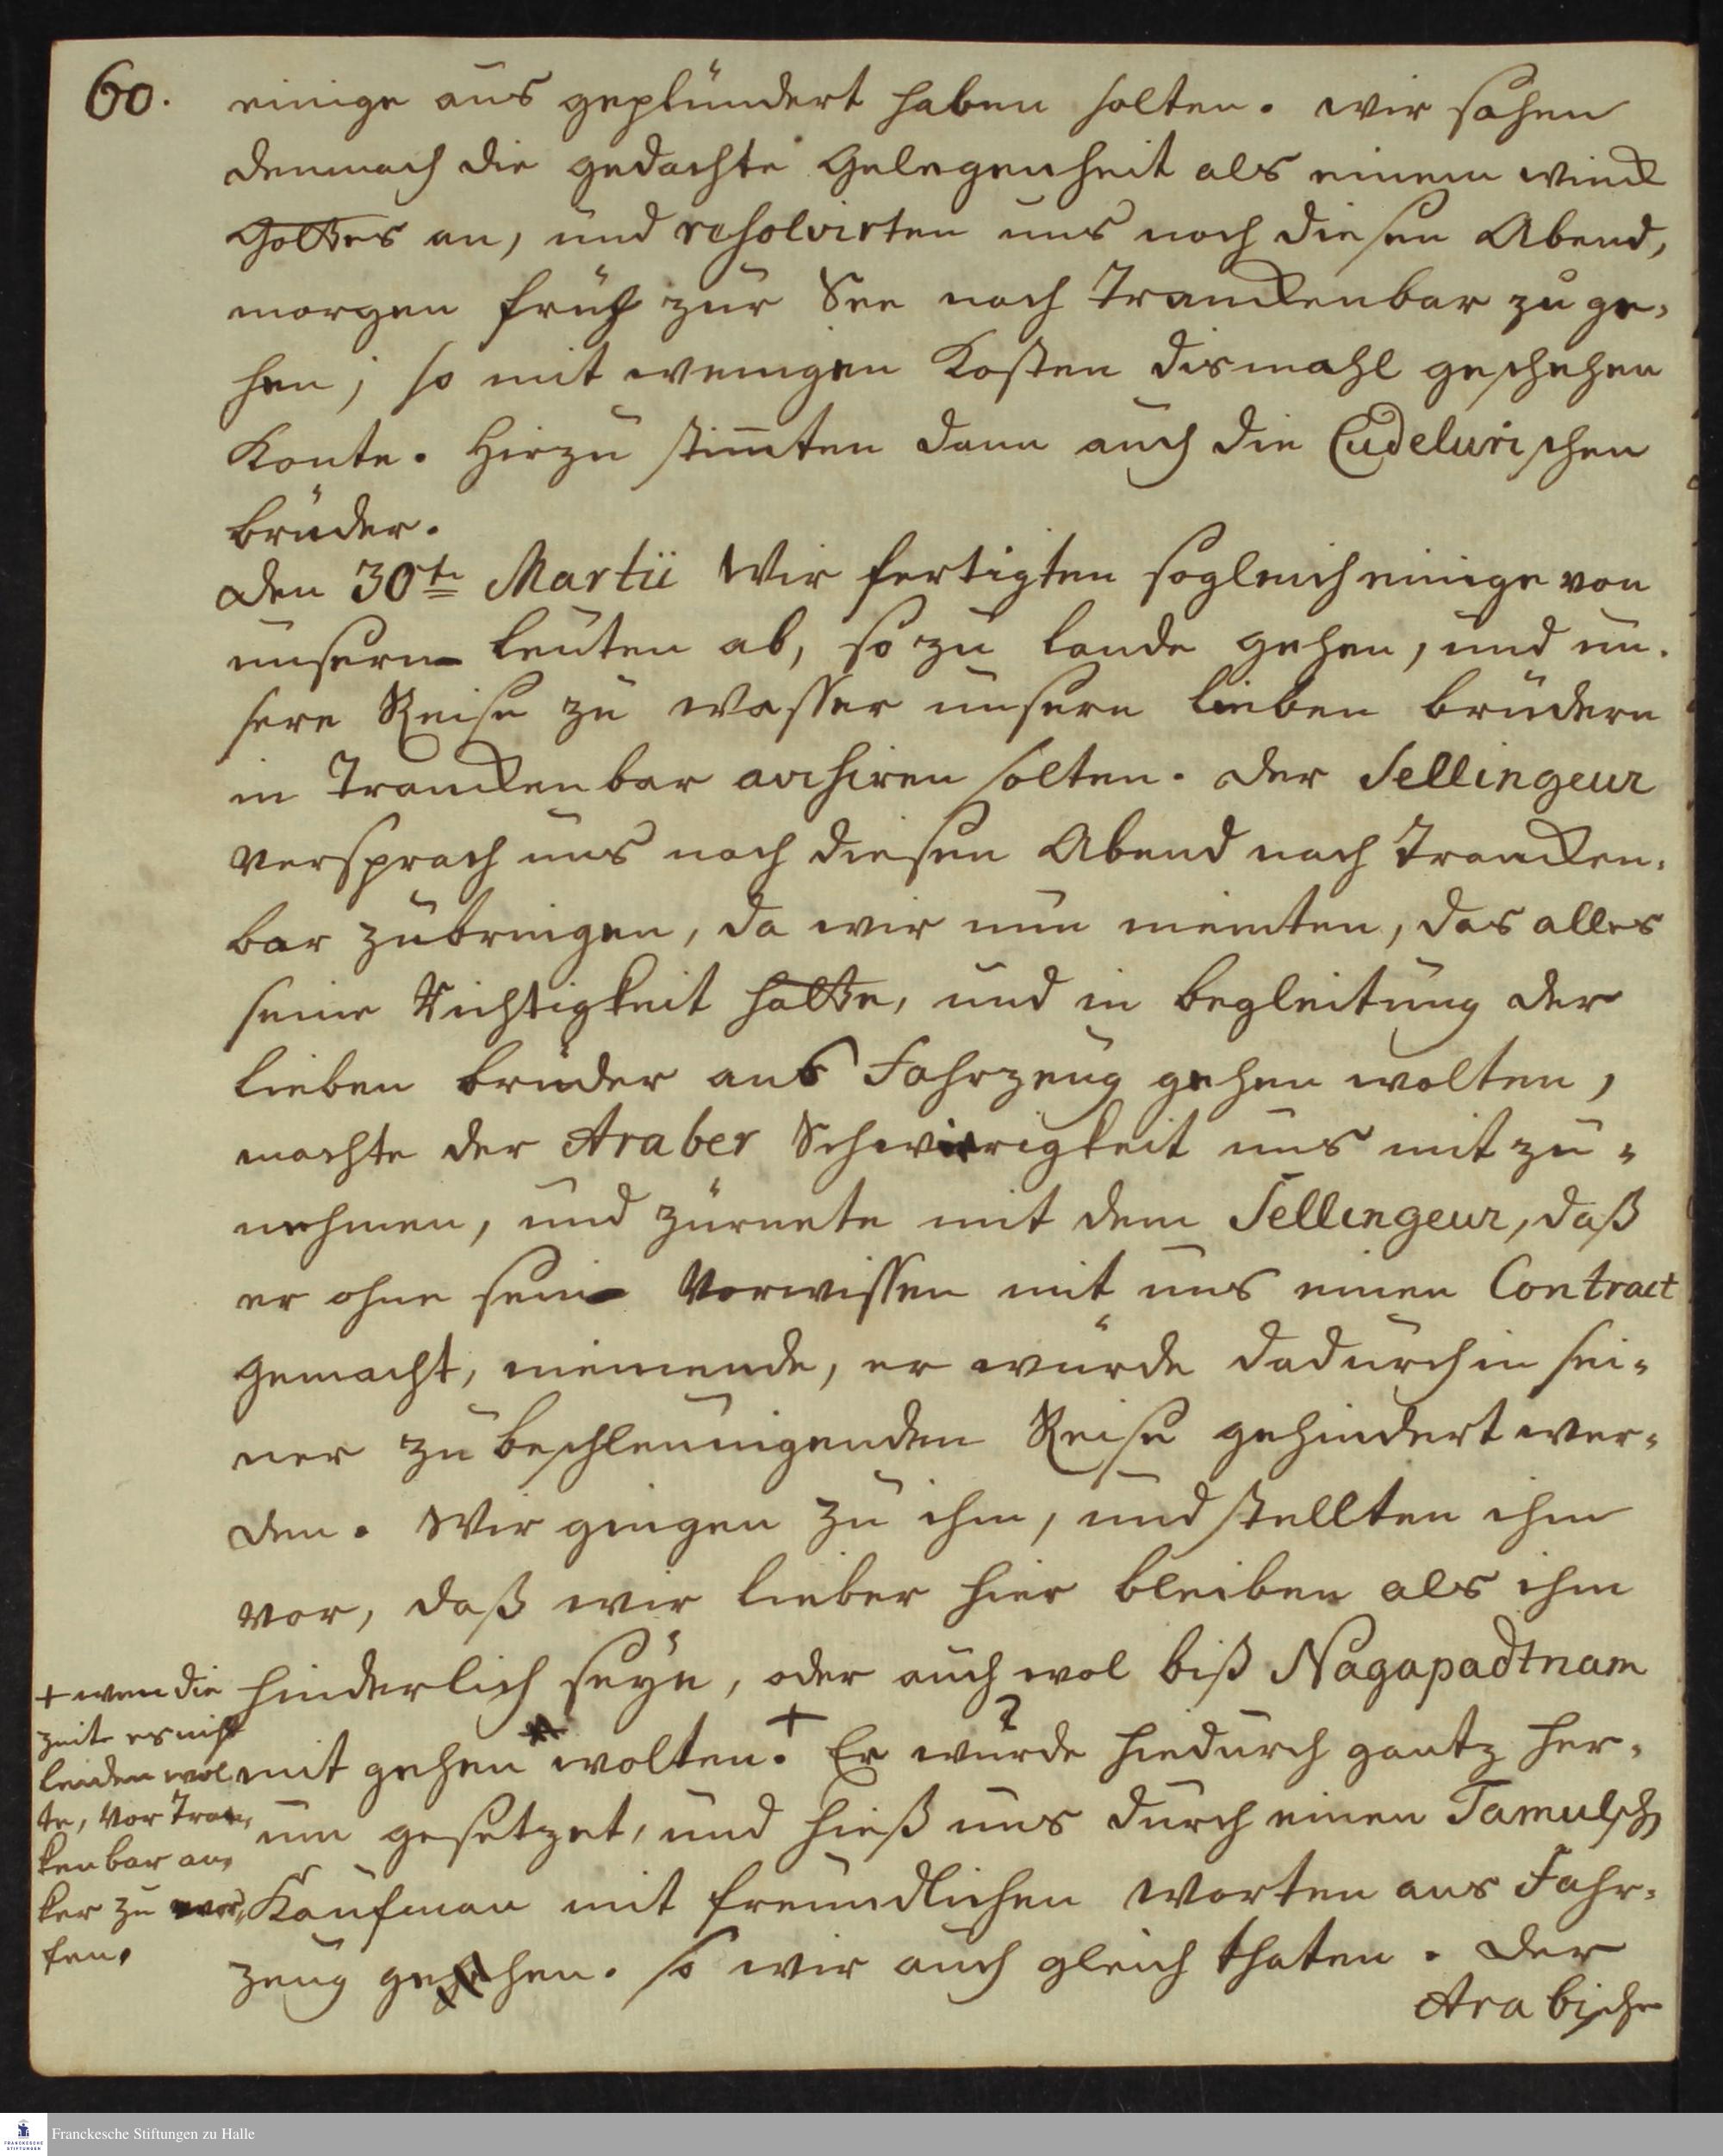 60.
einige aus geplündert haben solten. wir sahen
demnach die gedachte Gelegenheit als einem winck
Gottes an, und resolvirten uns noch diesen Abend,
morgen früh zur See nach Tranckenbar zu ge,
hen; so mit wenigen Kosten dismahl geschehen
Konte. Hirzu stim̄ten dann auch die Cudelurischen
brüder.
Den 30te Martii Wir fertigten sogleich einige von
unsern leuten ab, so zu lande gehen, und un.
sere Reise zu wasser unsern lieben brüdern
in Tranckenbar avisiren solten. Der Sellingeur
versprach uns noch diesen Abend nach Trancken,
bar zubringen, da wir nun meinten, das alles
seine Richtigkeit hatte, und in begleitung der
lieben brüder ans Fahrzeug gehen wolten,
machte der Araber Schwierigkeit uns mit zu,,
nehmen, und zürnete mit dem Sellingeur, daß
er ohne sein Vorwissen mit uns einen Contract
gemacht, meinende, er würde dadurch in sei,,
ner zu beschleunigenden Reise gehindert wer,,
den. Wir gingen zu ihm, und stellten ihm
vor, daß wir lieber hier bleiben als ihm
hinderlich seÿn, oder auch wol biß Nagapadtnam
mit gehen wolten. + Er würde hiedurch gantz her,
um gesetzet, und hieß uns durch einen Tamulsch
Kaufman mit freundlichen Worten ans Fahr,
zeug gehen. so wir auch gleich thaten. Der
Arabische
+ wen die
zeit es nicht
leiden wol
te, vor Tran,
kenbar an,
ker zu wer,,
fen.
Franckesche Stiftungen zu Halle
FRANCKESCHE
STIFTUNGEN